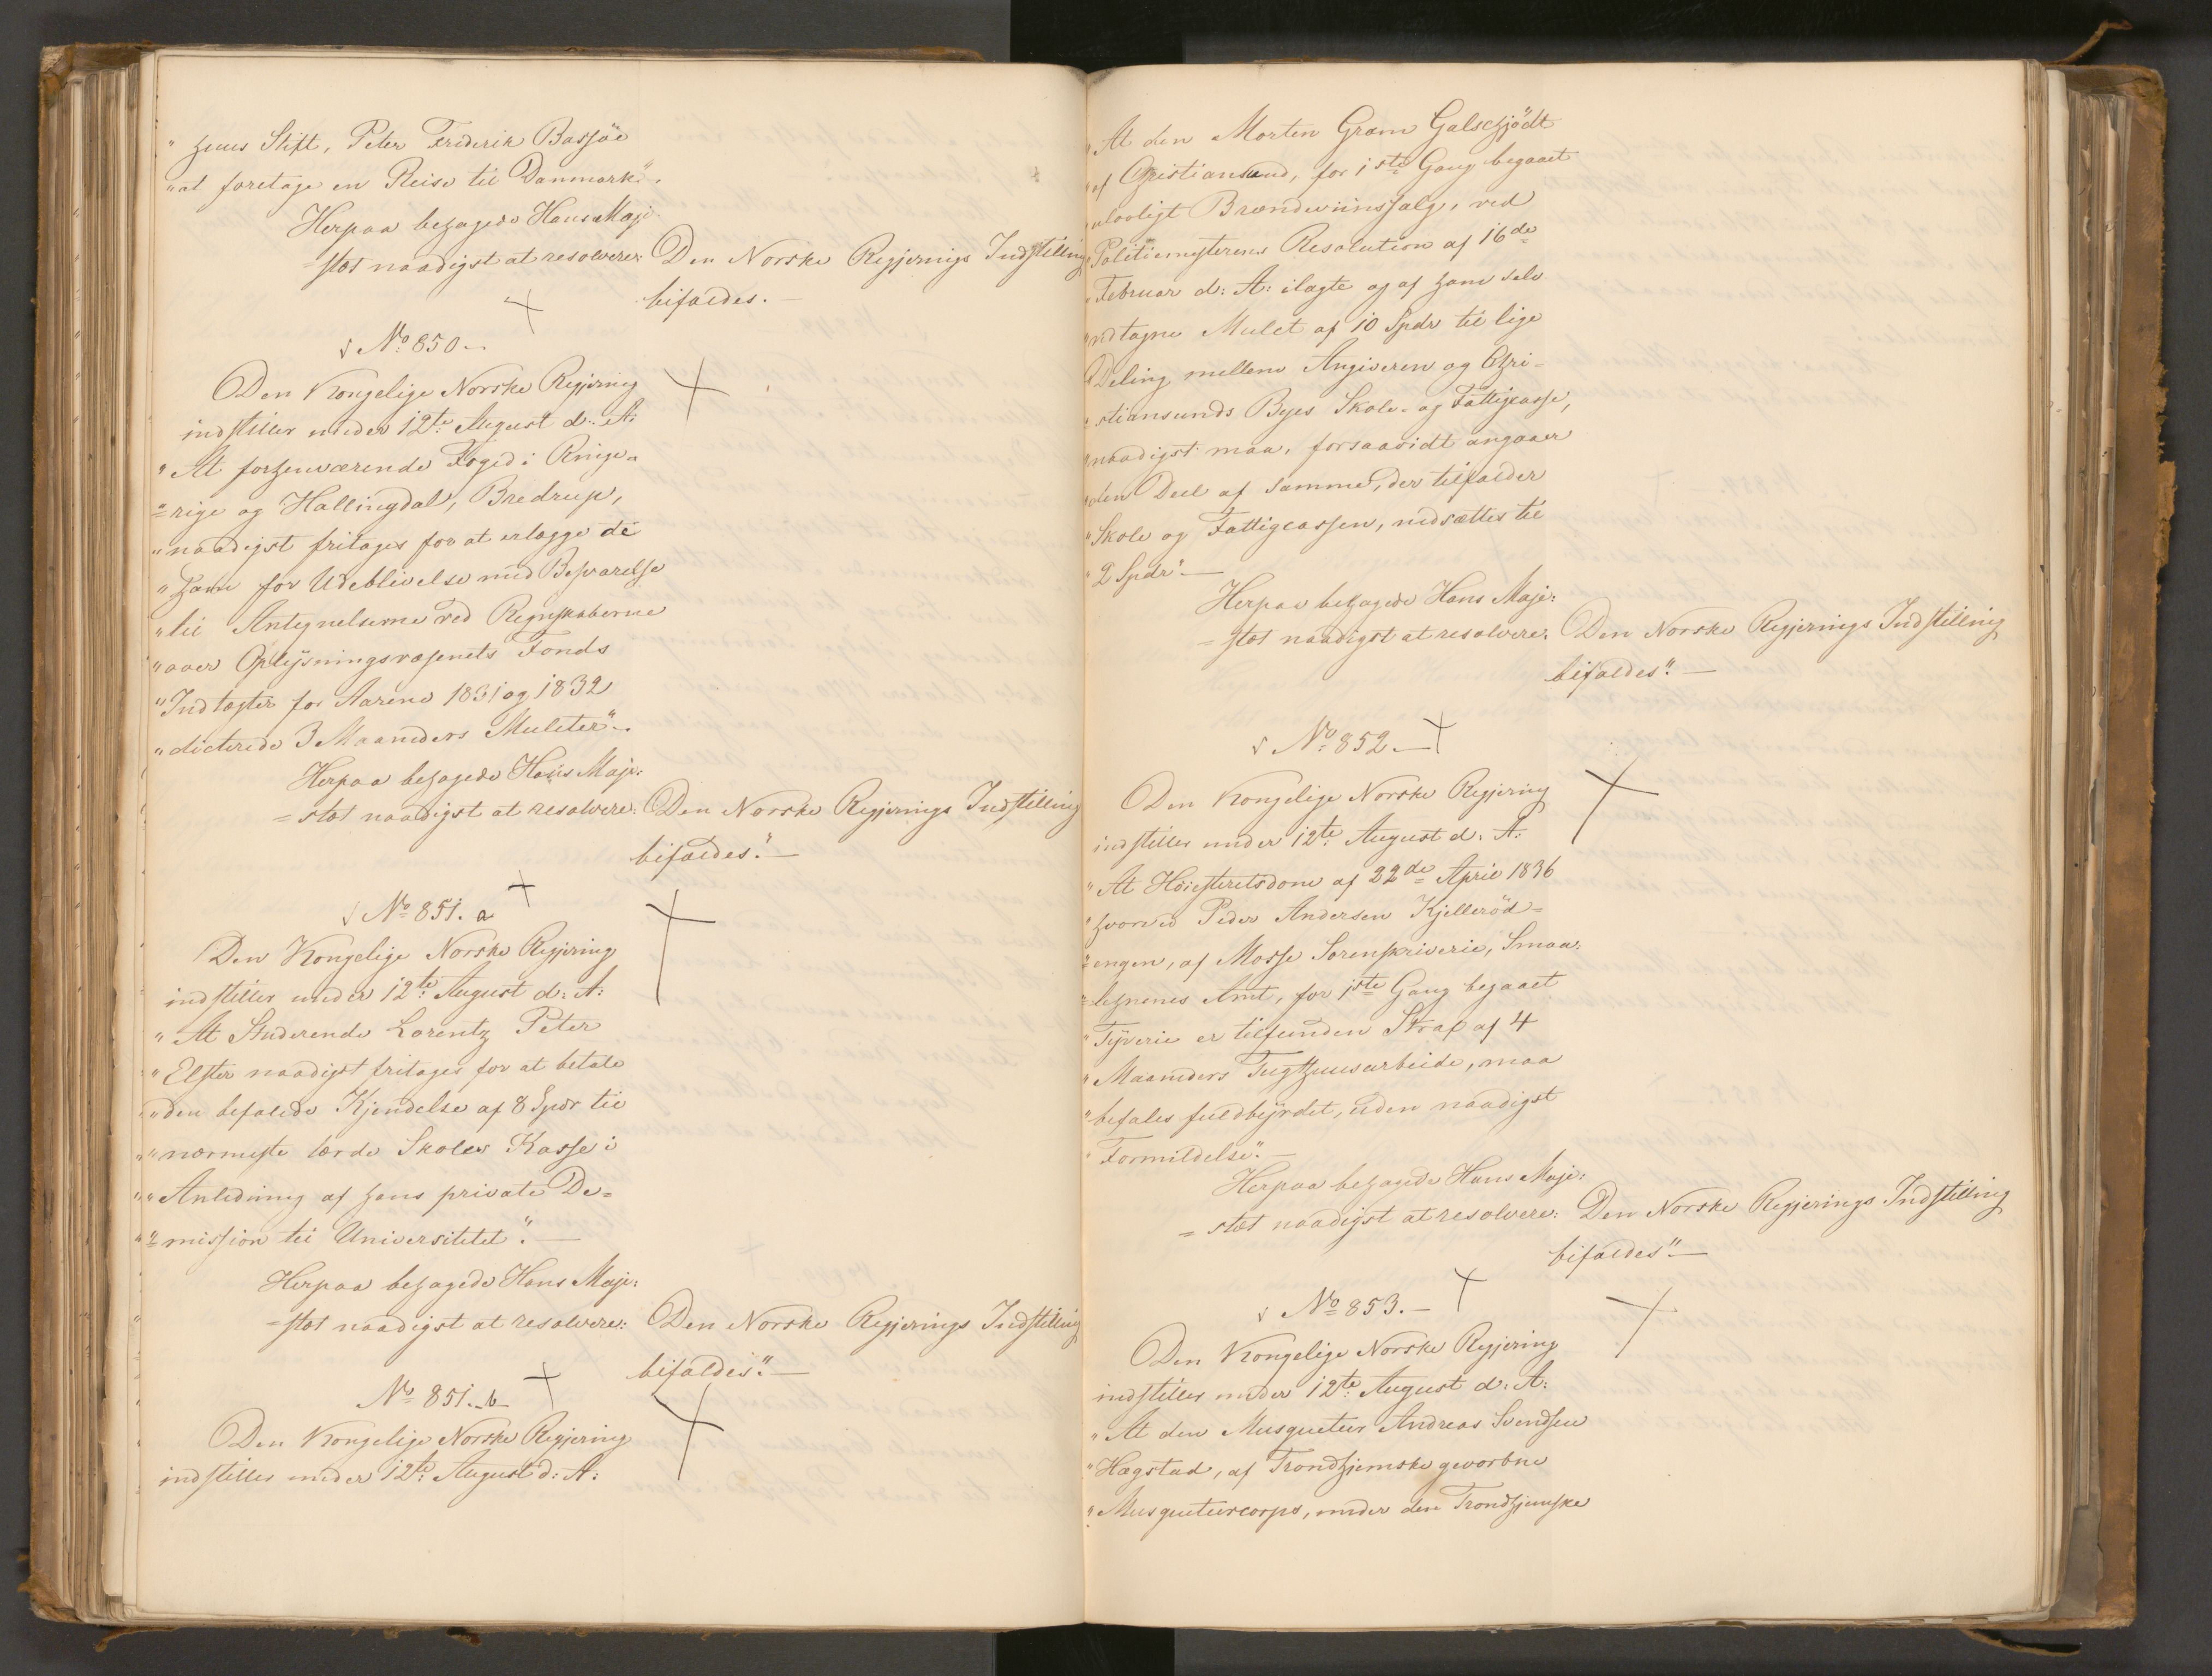 " huus Stift, Peter Frederik Bassøe
" at foretage en Reise til Danmark".
Herpaa behagede Hans Maje-
stæt naadigst at resolvere: Den Norske Regjerings Indstilling
bifaldes. —
No 850 —
Den Kongelige Norske Regjering
indstiller under 12te August d. A:
" At forhenværende Foged i Ringe-
= rige og Hallingdal, Bredrup,
" naadigst fritages for at erlægge de
" ham for Udeblivelse med Besvarelse
" til Antegnelserne ved Regnskaberne
" over Oplysningsvæsenets Fonds
" Indtægter for Aarene 1831 og 1832
" dicterede 3 Maaneders Mulcter". 
Herpaa behagede Hans Maje:
= stæt naadigst at resolvere: Den Norske Regjerings Indstilling
bifaldes." —
No 851. a
Den Kongelige Norske Regjering
indstiller under 12te August d: A:
" At Studerende Lorentz Peter
" Elster naadigst fritages for at betale
" den befalede Kjendelse af 8 Spdr til
" nærmeste lærde Skoles Kasse i
" Anledning af hans private De=
" = mission til Universitetet". —
Herpaa behagede Hans Maje:
= stæt naadigst at resolvere: Den Norske Regjerings Indstilling
bifaldes". —
No 851. b
Den Kongelige Norske Regjering
indstiller under 12te August d: A:
" At den Morten Gram Galschjødt
" af Christiansund, for 1ste Gang begaaet
" ulovligt Brændeviinssalg, ved
" Politiemesterens Resolution af 16de
" Februar d: A: ilagte og af ham selv
" vedtagne Mulct af 10 Spdr til lige
" Deling mellem Angiveren og Chri-
= stiansunds Byes Skole- og Fattigcasse,
" naadigst maa, forsaavidt angaaer
" den Deel af samme, der tilfalder
" Skole og Fattigcassen, nedsættes til
" 2 Spdr". —
Herpaa behagede Hans Maje:
= stæt naadigst at resolvere: Den Norske Regjerings Indstilling
bifaldes". —
No 852 —
Den Kongelige Norske Regjering
indstiller under 12te August d: A:
" At Høiesteretsdom af 22de April 1836
" hvorved Peder Andersen Kjellerød=
= engen, af Mosse Sorenskriverie, Smaa:
= lehnenes Amt, for 1ste Gang begaaet
" Tyverie er tilfunden Straf af 4
" Maaneders Tugthuusarbeide, maa
" befales fuldbyrdet, uden naadigst
" Formildelse". —
Herpaa behagede Hans Maje:
= stæt naadigst at resolvere: Den Norske Regjerings Indstilling
bifaldes" —
No 853. —
Den Kongelige Norske Regjering
indstiller under 12te August d: A:
" At den Musqueteer Andreas Svendsen
" Hægstad, af Trondhjemske gevorbne
" Musqueteercorps, under den Trondhjemske